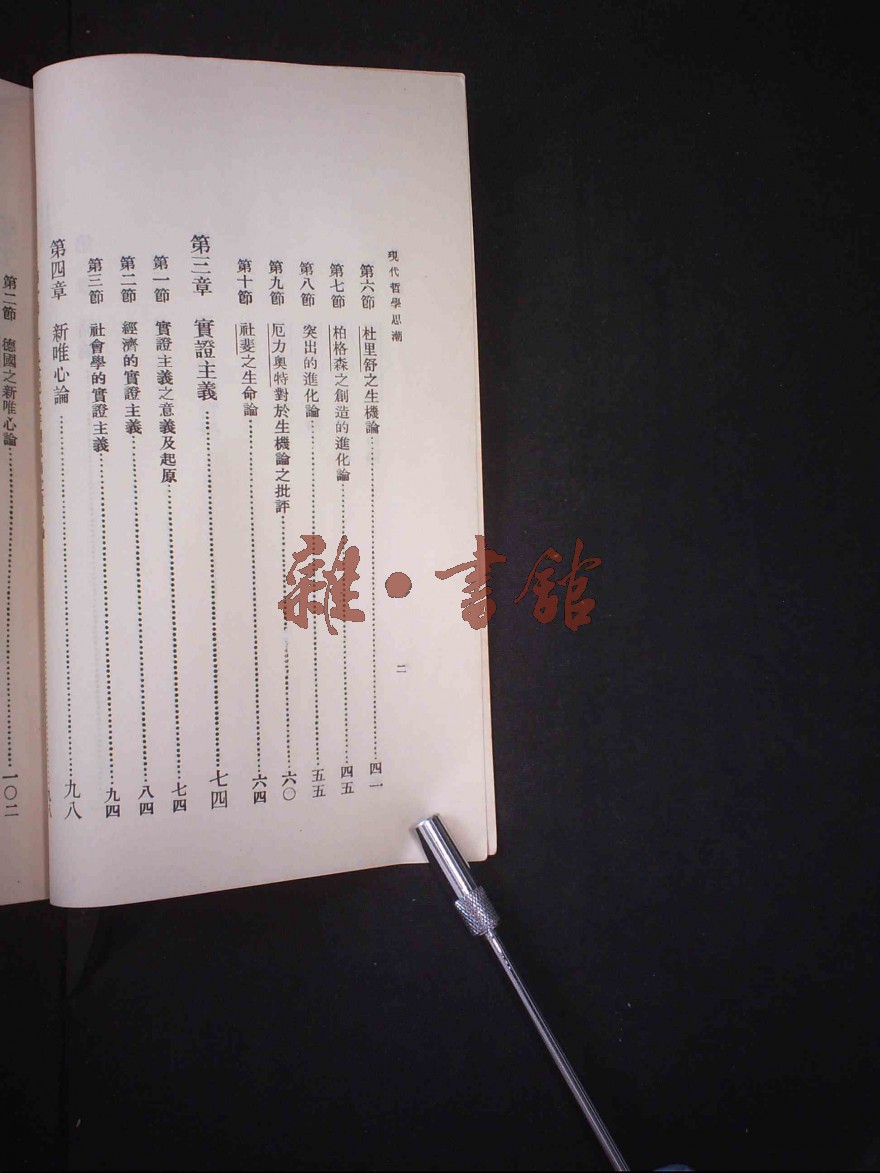 現代哲學思潮
二
第六節 杜里舒之生機論……四一
第七節 柏格森之創造的進化論……四五
第八節 突出的進化論……五五
第九節 厄力奧特對於生機論之批評……六〇
第十節 社斐之生命論……六四
第三章 實證主義……七四
第一節 實證主義之意義及起原……七四
第二節 經濟的實證主義……八四
第三節 社會學的實證主義……九四
第四章 新唯心論……九八
第二節 德國之新唯心論……一〇二
雜·書館